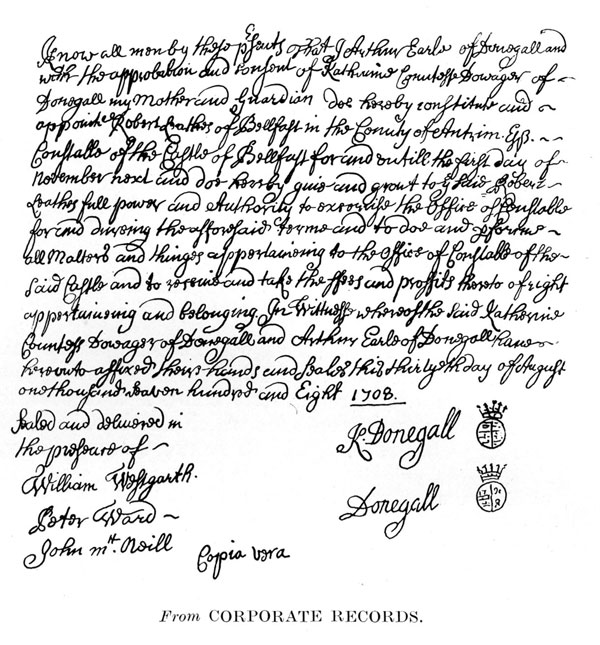 Know all men by these p^sents That I Arthur Earle of Donegall and
with the approbation and consent of Katharine Countesse Dowager of
Donegall my Mother and Guardian doe hereby constitute and
appointe Robert Leathes of Bellfast in the County of Antrim. Esq^r.
Constable of the Castle of Bellfast for and untill the first day of
November next and doe hereby give and grant to y^e said Robert
Leathes full power and Authority to exercise the Office of Constable
for and dureing the afforesaid terme and to doe and p^forme
all Matters and thinges appertaineing to the Office of Constable of the
said Castle and to receive and take the ffees and proffits thereto of right
appertaineing and belonging. In Wittnesse whereof the said Katherine
Countess Dowager of Donegall and Arthur Earle of Donegall have
hereunto affixed theire hands and Seales this thirtyeth day of August
one thousand seaven hundred and Eight 1708.
Sealed and delivered in
the presence of
William Westgarth.
Peter Ward
John m^tt. Neill
Copia vera
K. Donegall
Donegall
From CORPORATE RECORDS.